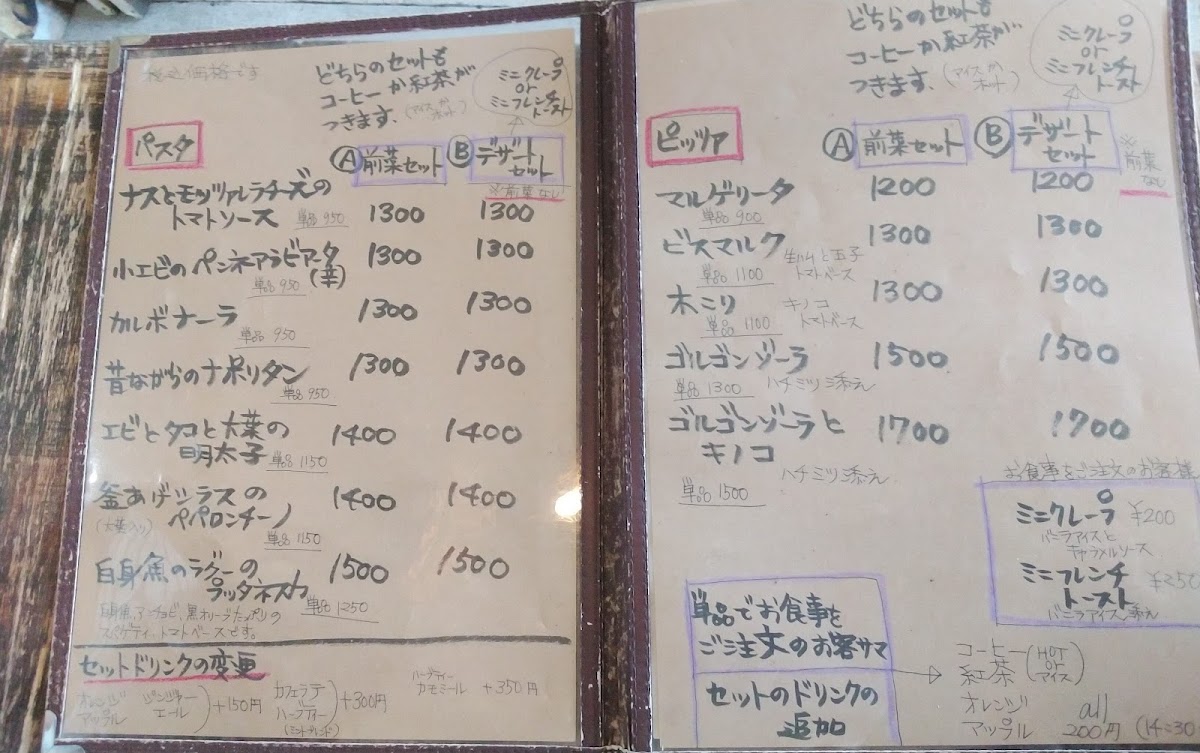 税込価格です
どちらのセットも
コーヒーか紅茶が
つきます。(アイスかホット)
ミニクレープ
or
ミニフレンチ
トースト
パスタ
Ⓐ 前菜セット Ⓑ デザートセット
※前菜なし
ナスとモッツァレラチーズの
トマトソース 単品950 1300 1300
小エビのペンネアラビアータ
(辛) 単品950 1300 1300
カルボナーラ 1300 1300
単品950
昔ながらのナポリタン 1300 1300
単品950
エビとタコと大葉の 1400 1400
明太子 単品1150
釜あげシラスの 1400 1400
(大葉入り) ペペロンチーノ
単品1150
白身魚のラグーの 1500 1500
プッタネスカ
単品1250
白身魚、アンチョビ、黒オリーブたっぷりの
スパゲティ、トマトベースです。
セットドリンクの変更
オレンジ
アップル
ジンジャー
エール
)+150円
カフェラテ
ハーブティー
(ミントブレンド)
)+300円
ハーブティー
カモミール +350円
どちらのセットも
コーヒーか紅茶が
つきます。(アイスかホット)
ミニクレープ
or
ミニフレンチ
トースト
ピッツァ
Ⓐ 前菜セット Ⓑ デザートセット
※前菜なし
マルゲリータ 1200 1200
単品900
ビスマルク 1300 1300
単品1100 生ハムと玉子
トマトベース
木こり 1300 1300
単品1100 キノコ
トマトベース
ゴルゴンゾーラ 1500 1500
単品1300 ハチミツ添え
ゴルゴンゾーラと 1700 1700
キノコ
ハチミツ添え
単品1500
お食事をご注文のお客様
ミニクレープ ¥200
バニラアイスと
キャラメルソース
ミニフレンチ ¥250
トースト
バニラアイス添え
単品でお食事を
ご注文のお客サマ
セットのドリンクの
追加
コーヒー
紅茶
(HOT
or
アイス)
オレンジ
アップル
all
200円
(14:30